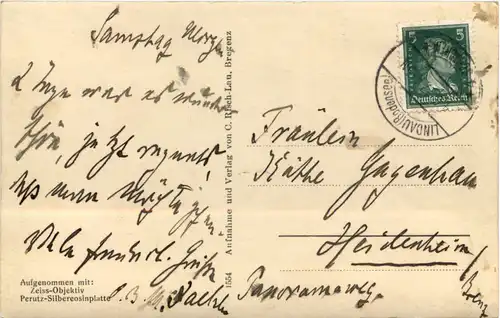 Samstag Morgen
2 Tage war es wunder
schön, jetzt regnet's,
Viele freundl. Grüße
Aufgenommen mit:
Zeiss-Objektiv
Perutz-Silbereosinplatte
1554 Aufnahme und Verlag von C. Risch-Lau, Bregenz
5 5
Deutsches Reich
LINDAU (Bodensee)
Fräulein
Käthe
Heidenheim
Panoramaweg
Brenz